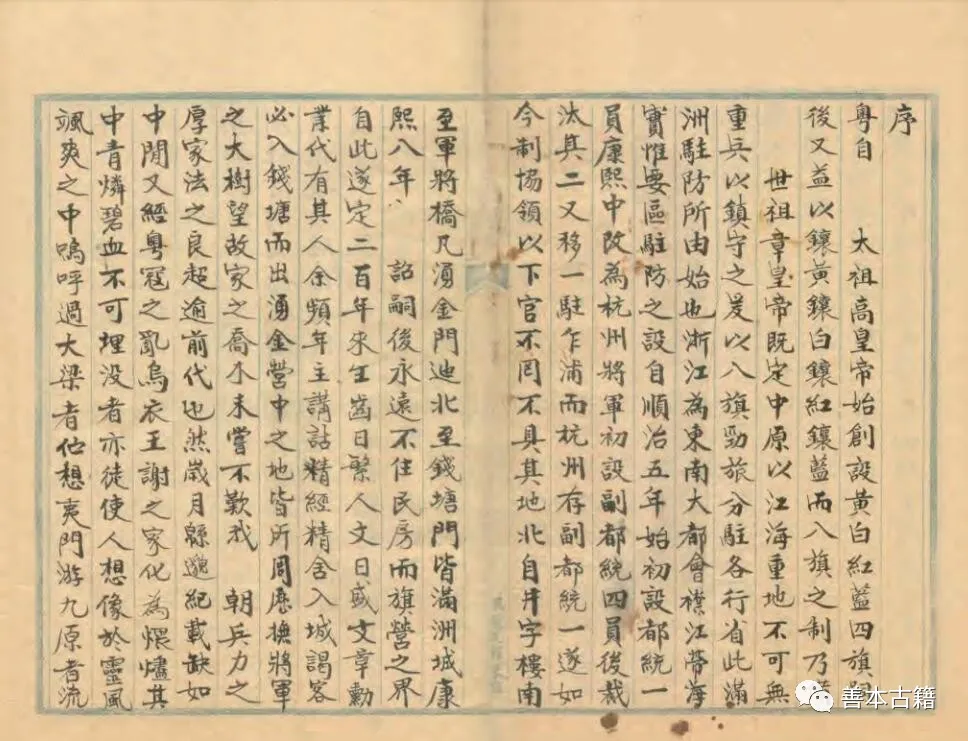 序
粵自 太祖高皇帝始創設黃白紅藍四旗
後又益以鑲黃鑲白鑲紅鑲藍而八旗之制乃
世祖章皇帝既定中原以江海重地不可無
重兵以鎮守之爰以八旗勁旅分駐各行省此滿
洲駐防所由始也浙江為東南大都會襟江帶海
實惟要區駐防之設自順治五年始初設都統一
員康熙中改為杭州將軍初設副都統四員後裁
汰其二又移一駐乍浦而杭州存副都統一遂如
今制協領以下官不罔不具其地北自井字樓南
至軍將橋凡湧金門迆北至錢塘門皆滿洲城康
熙八年 詔嗣後永遠不住民房而旗營之界
自此遂定二百年來生齒日繁人文日盛文章勳
業代有其人余頻年主講詁精經精舍入城謁客
必入錢塘而出湧金營中之地皆所周歷撫將軍
之大樹望故家之喬木未嘗不歎我 朝兵力之
厚家法之良超逾前代也然歲月緜邈紀載缺如
中間又經粵寇之亂烏衣王謝之家化為煨燼其
中青燐碧血不可埋没者亦徒使人想像於靈風
颯爽之中嗚呼過大梁者佇想夷門游九原者流
善本古籍